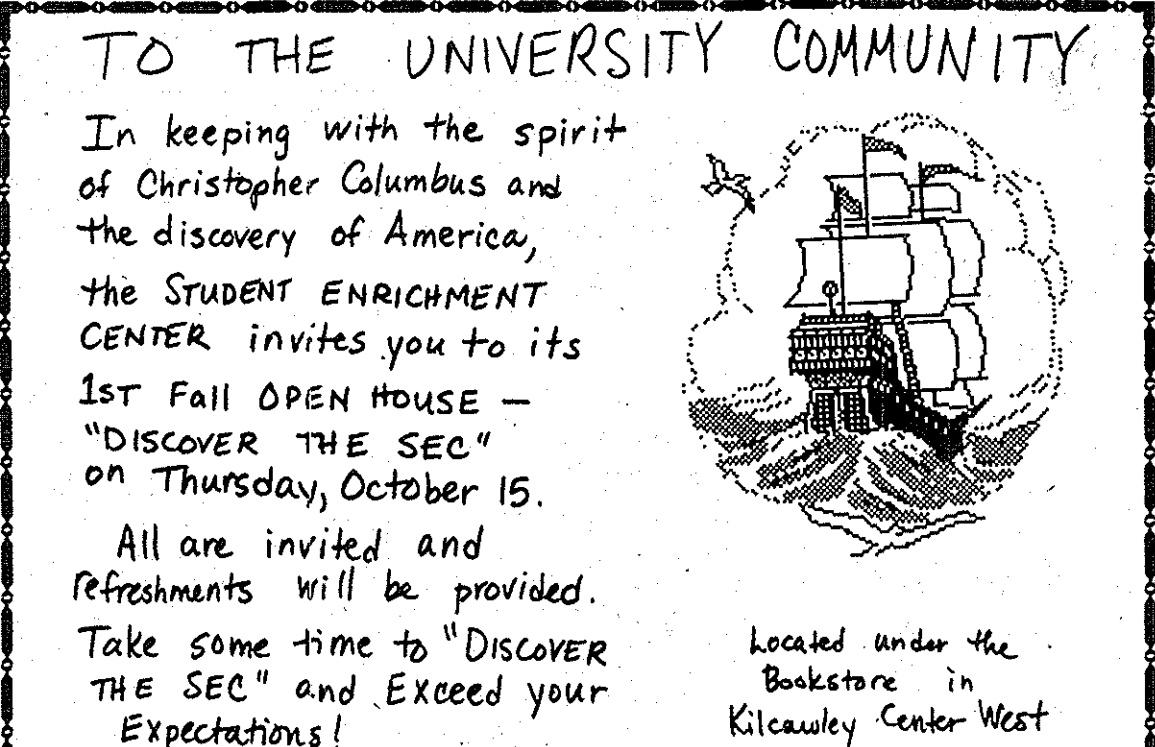 TO THE UNIVERSITY COMMUNITY
In keeping with the spirit
of Christopher Columbus and
the discovery of America,
the STUDENT ENRICHMENT
CENTER invites you to its
1ST Fall OPEN HOUSE —
"DISCOVER THE SEC"
on Thursday, October 15.
All are invited and
refreshments will be provided.
Take some time to "DISCOVER
THE SEC" and Exceed your
Expectations!
Located under the
Bookstore in
Kilcawley Center West